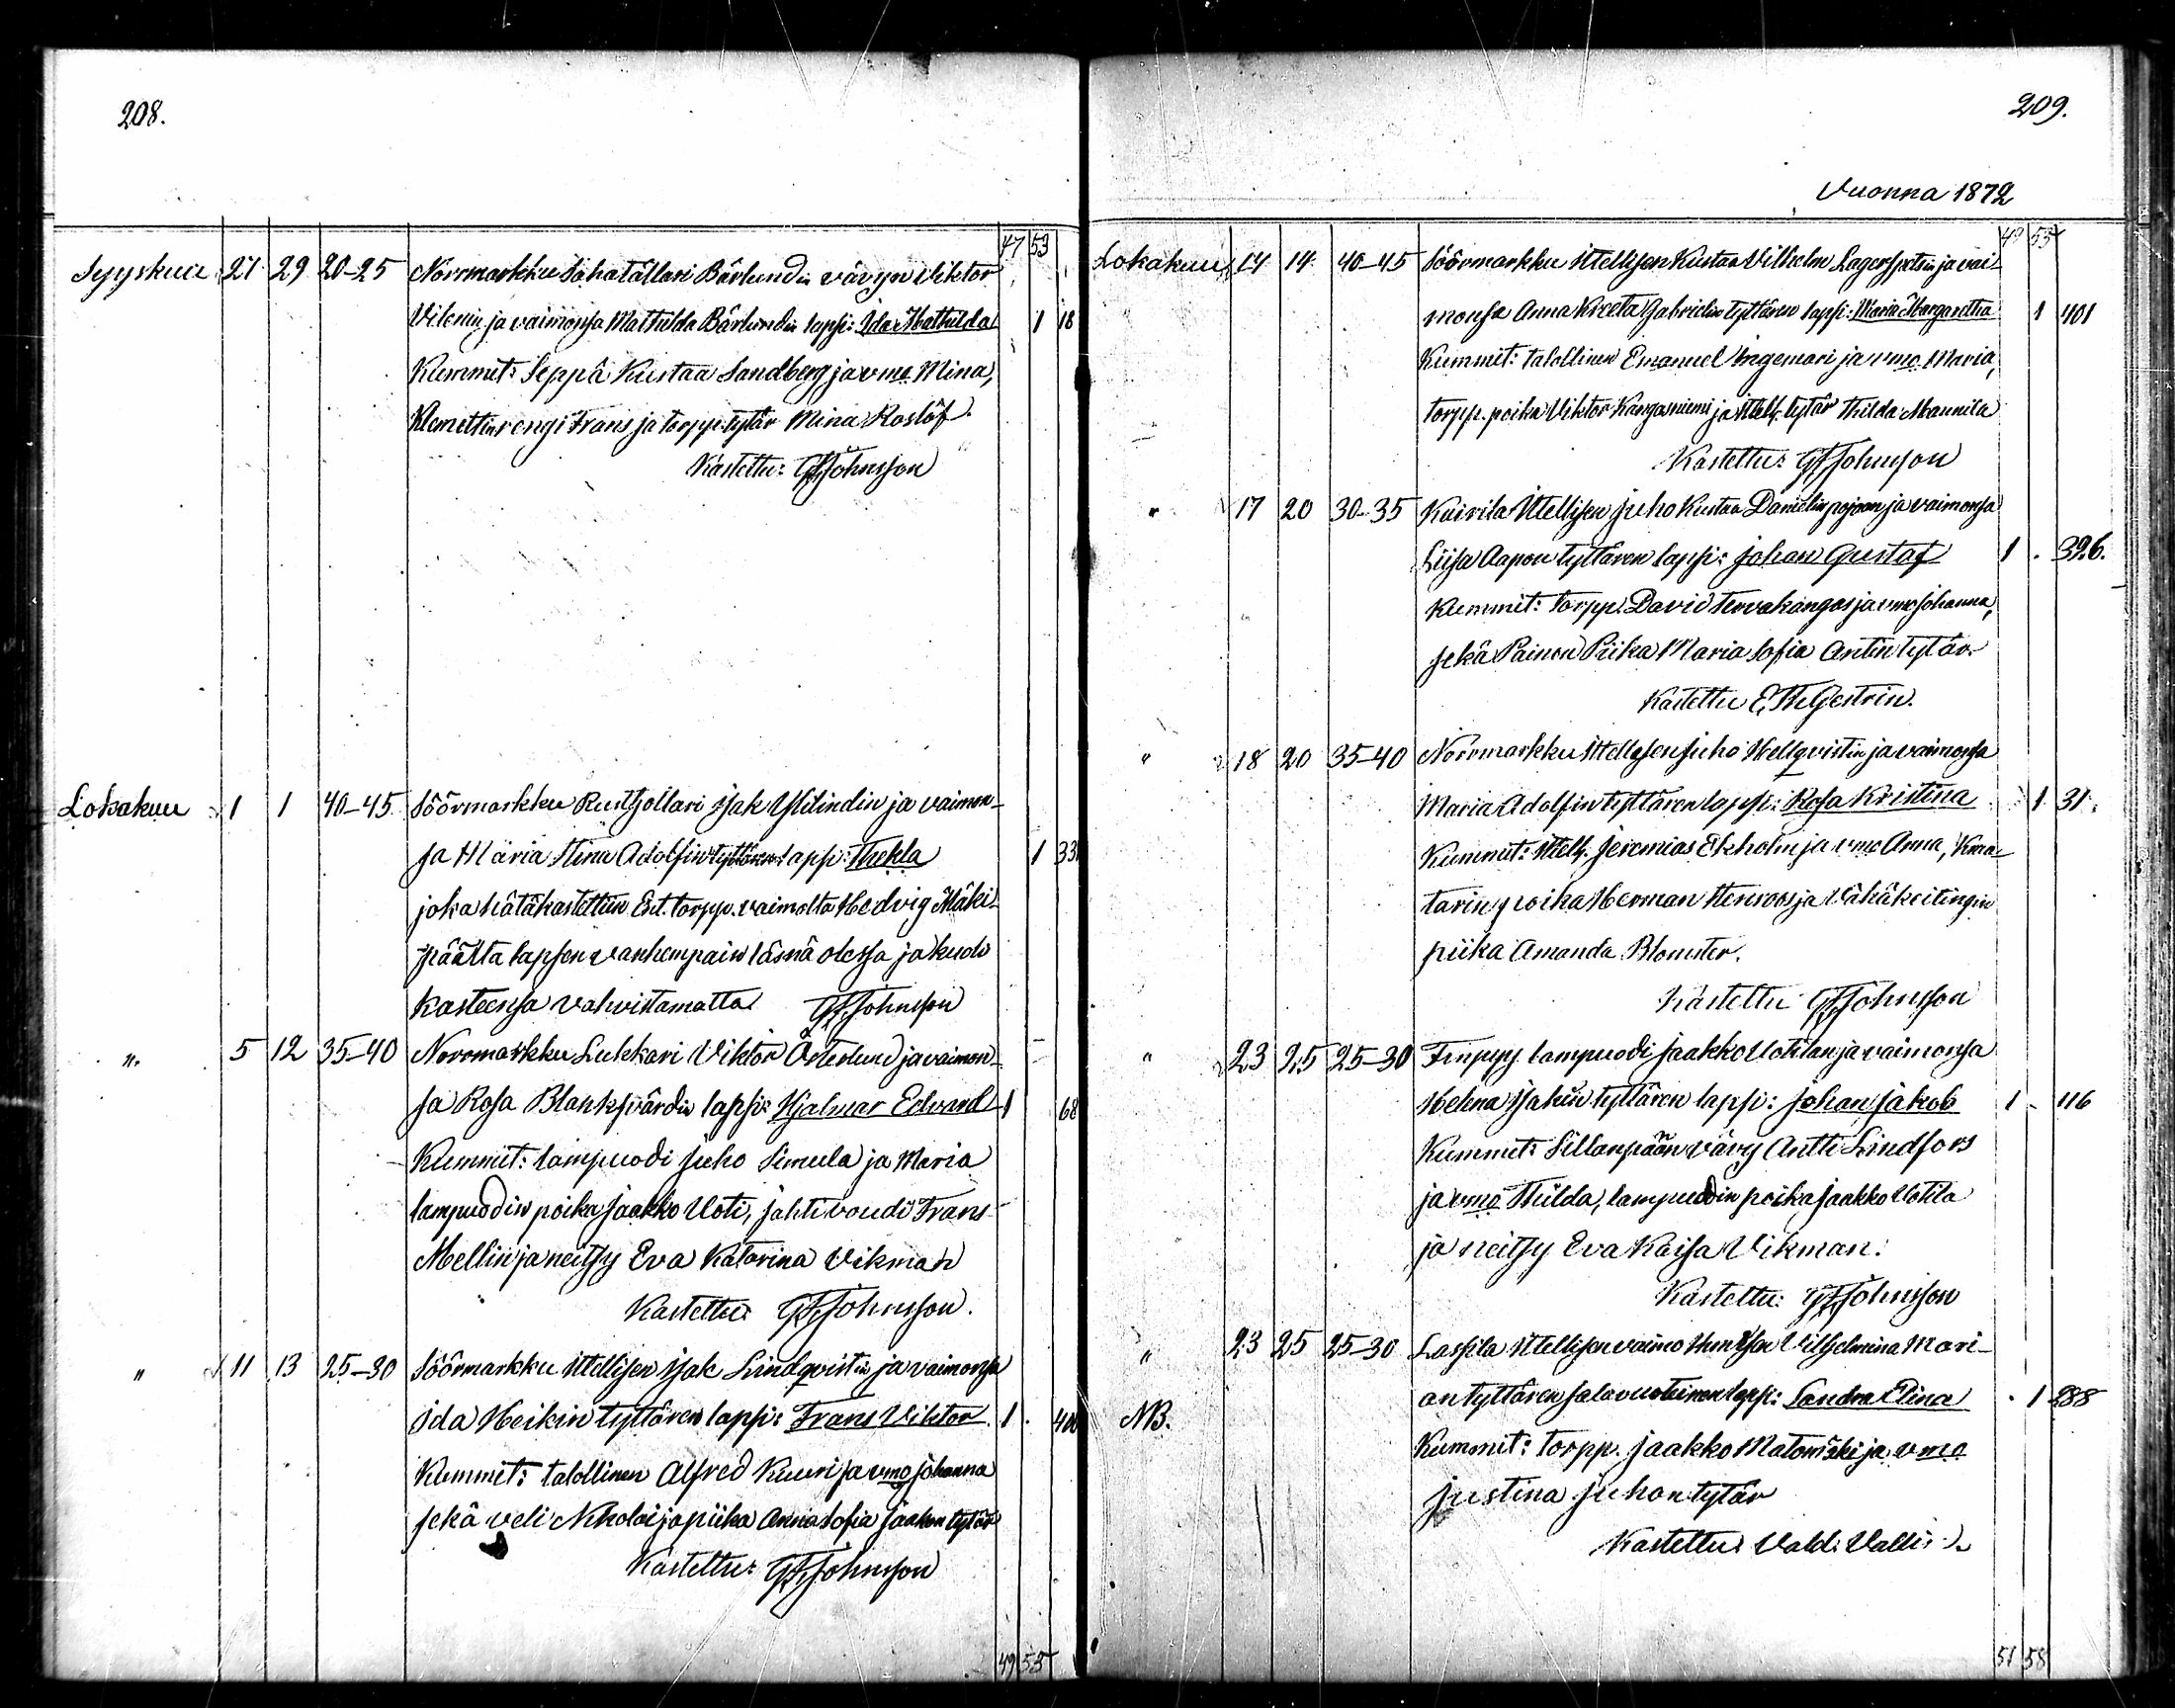 208.
47 53
Syyskuu 27 29 20-25 Norrmarkku Sahatållari Bärlundin vävyn Viktor
Vilenin ja vaimonsa Mathilda Bärlundin lapsi: Ida Mathilda 1 18
Kummit: Seppä Kustaa Sandberg ja vmo Mina,
Klemettin rengi Frans ja torpp. tytär Mina Roslöf.
Kastettu: G F Johnsson
Lokakuu 1 1 40-45 Söörmarkku Rusthollari Isak Ylilindin ja vaimon-
sa Maria Stina Adolfintyttären lapsi: Thekla 1 33
joka hätäkastettiin Ent. torpp. vaimolta Hedvig Mäki-
päältä lapsen vanhempain läsnä olessa ja kuoli
kasteensa vahvistamatta G F Johnsson
". 5 12 35-40 Norrmarkku Lukkari Viktor Österlund ja vaimon-
sa Rosa Blanksvärdin lapsi: Hjalmar Edvard 1 68
Kummit: lampuodi Juho Simula ja Maria
lampuodin poika Jaakko Uoti, jahtivouti Frans
Mellin ja neitsy Eva Katarina Vikman
Kastettu: G F Johnsson.
" 11 13 25-30 Söörmarkku Ittellisen Isak Lindqvistin ja vaimonsa
Ida Heikin tyttären lapsi: Frans Viktor. 1 400
Kummit: talollinen Alfred Kuuri ja vmo Johanna
sekä veli Nikolai ja piika Anna Sofia Jaakon tytär
Kastettu: G F Johnsson
49 55
209.
Vuonna 1872
49 55
Lokakuu 14 14 40-45 Söörmarkku Ittellisen Kustaa Vilhelm Lagerspetsin ja vai-
monsa Anna Kreeta Gabrielin tyttären lapsi: Maria Margaretha 1 401
Kummit: talollinen Emanuel Ingemari ja vmo Maria,
torpp. poika Viktor Kangasniemi ja Ittells. tytär Hilda Mannila
Kastettu: G F Johnsson
" 17 20 30-35 Kairila Ittellisen Juho Kustaa Danielin pojan ja vaimonsa
Liisa Aapon tyttären lapsi: Johan Gustaf 1 396.
Kummit: torpp. David Tervakangas ja vmo Johanna,
sekä Painon Piika Maria Sofia Antin tytär.
Kastettu E, Th Gestrin.
" 18 20 35-40 Norrmarkku Ittellisen Juho Hellqvistin ja vaimonsa
Maria Adolfin tyttären lapsi: Rosa Kristina 1 31.
Kummit: Ittells. Jeremias Ekholm ja vmo Anna,
poika Herman Stenroos ja Vähäkeitingin
piika Amanda Blomster.
Kastettu G F Johnsson
" 23 25 25-30 Finpyy lampuodi Jaakko Uotilan ja vaimonsa
Helena Isakin tyttären lapsi: Johan Jakob 1 116
Kummit: Sillanpään vävy Antti Lindfors
ja vmo Hilda, lampuodin poika Jaakko Uotila
ja neitsy Eva Kaisa Vikman.
Kastettu: G F Johnsson
" 23 25 25-30 Lassila Ittellisen vaimo Vilhelmina Mari-
an tyttären salavuoteinen lapsi: Sandra Elina 1 288
NB.
Kummit: torpp. Jaakko Matomäki ja vmo
Justina Juhon tytär
Kastettu: Vald: Valli:
51 58